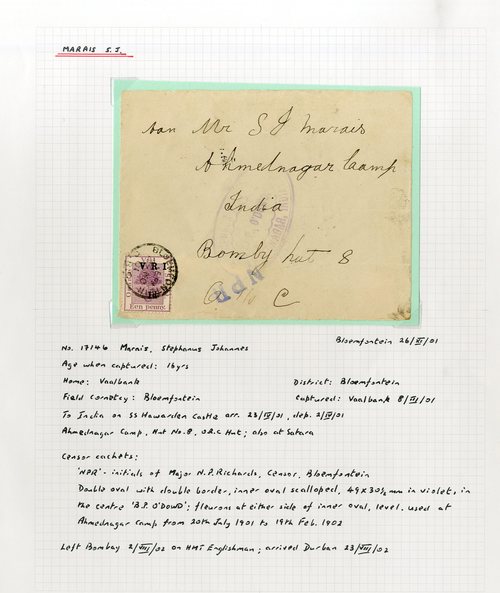 MARAIS S.J.
aan Mr S J Marais
Ahmednagar Camp
India
Bomby hut 8
O C
NPR
V.R.I.
Een penny
Bloemfontein 26/VI/01
No. 17146 Marais, Stephanus Johannes
Age when captured: 16yrs
Home: Vaalbank District: Bloemfontein
Field Cornetcy: Bloemfontein Captured: Vaalbank 8/III/01
To India on SS Hawarden Castle arr. 23/IV/01, dep. 2/IV/01
Ahmednagar Camp, Hut No. 8, O.R.C Hut; also at Satara
Censor cachets:
'NPR' - initials of Major N.P. Richards, Censor, Bloemfontein
Double oval with double border, inner oval scalloped, 49 x 30½ mm in violet, in
the centre 'B.P. O'DOWD'; fleurons at either side of inner oval, level, used at
Ahmednagar Camp from 20th July 1901 to 19th Feb. 1902
Left Bombay 2/VIII/02 on HMT Englishman; arrived Durban 23/VIII/02